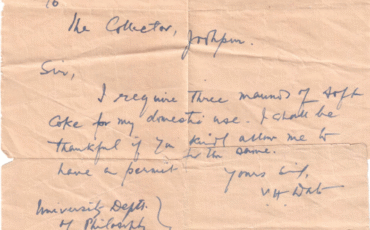 To
The Collector, Jodhpur.
Sir,
I require three maunds of soft
coke for my domestic use. I shall be
thankful if you kindly allow me to
have a permit for the same.
Yours sincly,
University Deptt.
of Philosophy